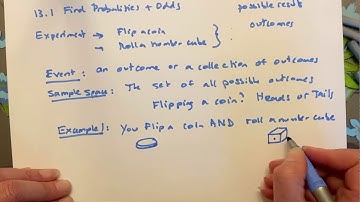 13.1 Find Probabilities + Odds
possible results
outcomes
Experiment → Flip a coin
→ Roll a number cube
Event: an outcome or a collection of outcomes
Sample Space: The set of all possible outcomes
Flipping a coin? Heads or Tails
Example 1: You flip a coin AND roll a number cube